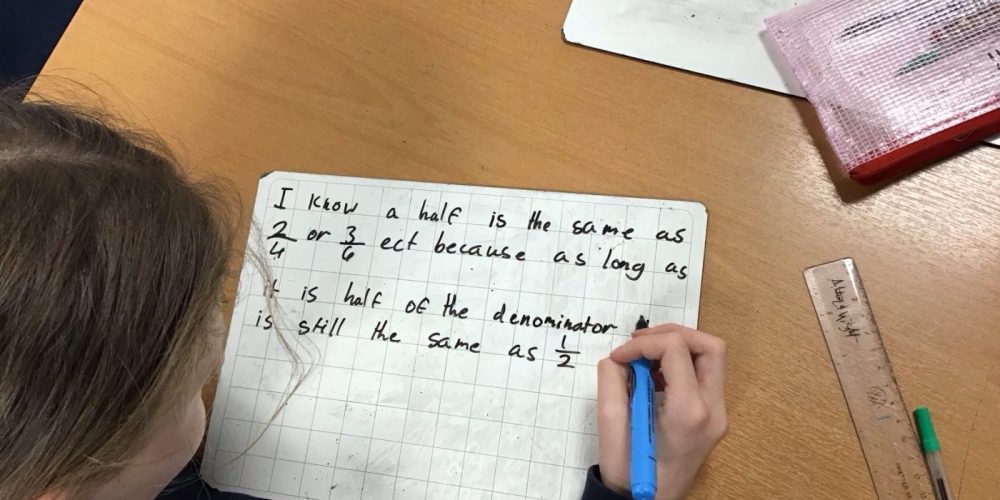 I know a half is the same as
2/4 or 3/6 ect because as long as
is half of the denominator
is still the same as 1/2